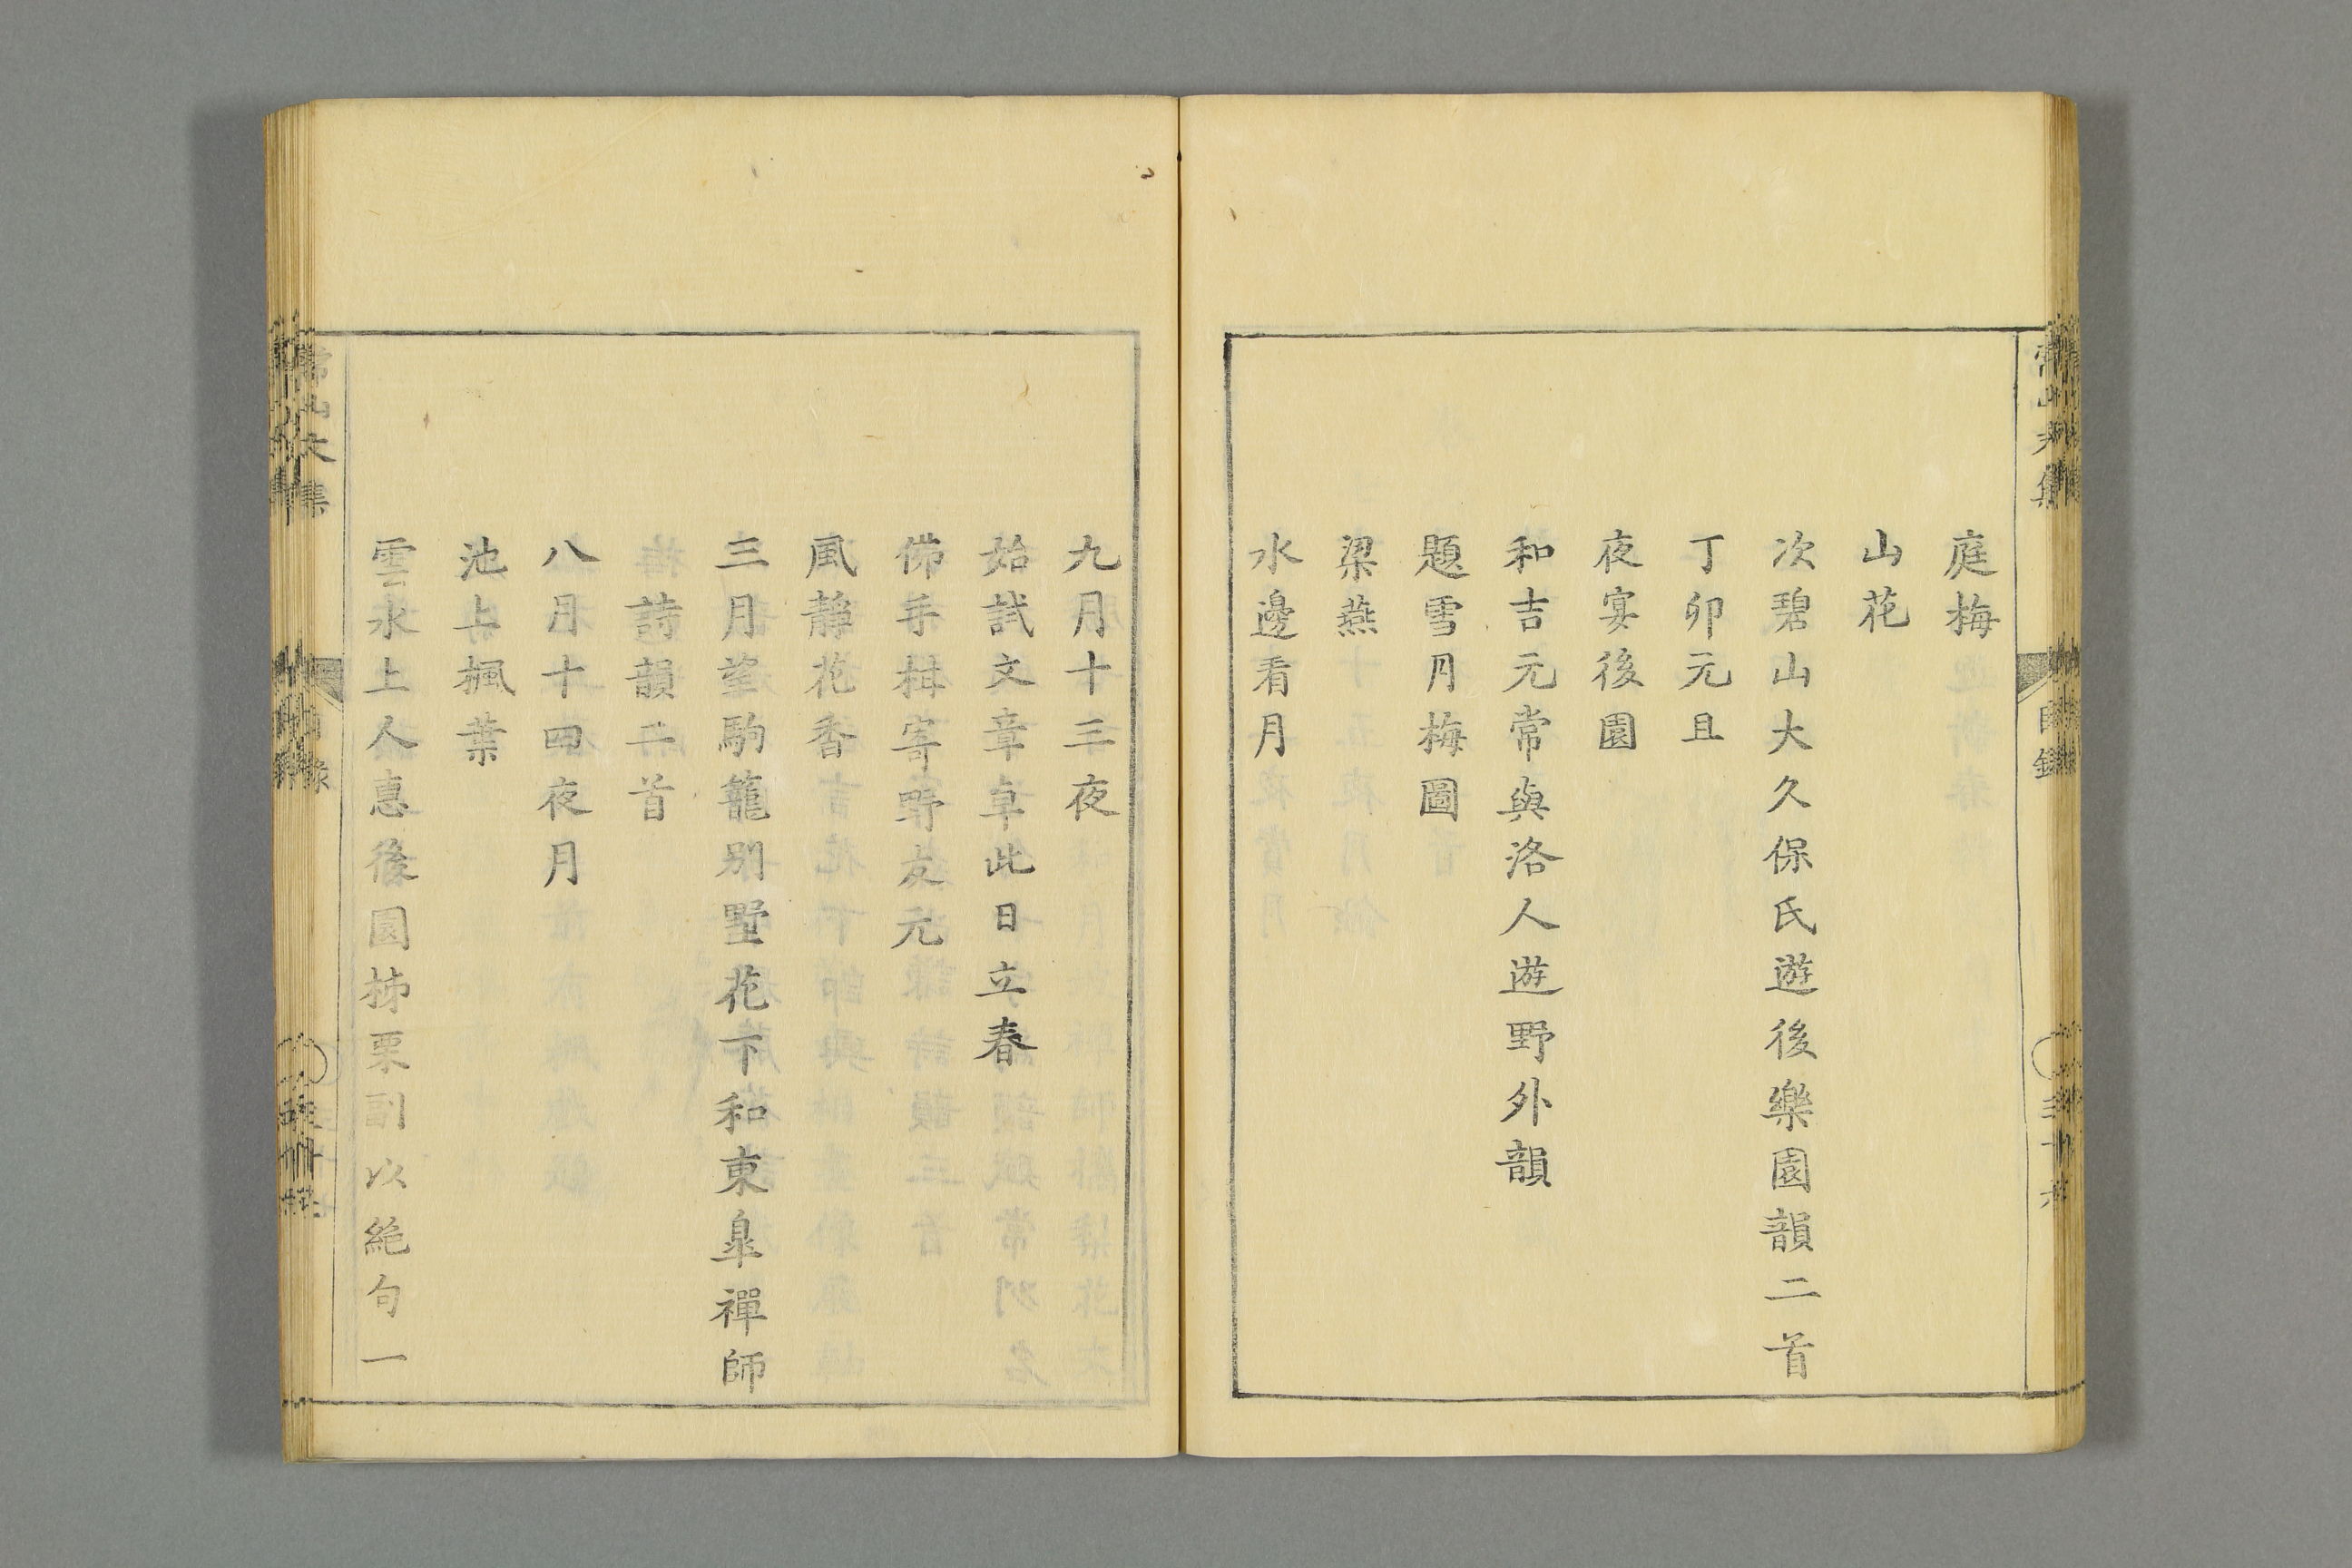 常山文集
目錄
庭梅
山花
次碧山大久保氏遊後樂園韻二首
丁卯元旦
夜宴後園
和吉元常與洛人遊野外韻
題雪月梅圖
梁燕
水邊看月
九月十三夜
始試文章草此日立春
佛手柑寄野友元
風靜花香
三月望駒籠別墅花下和東皐禪師
詩韻二首
八月十四夜月
池上楓葉
雲水上人惠後園柿栗副以絶句一
常山文集